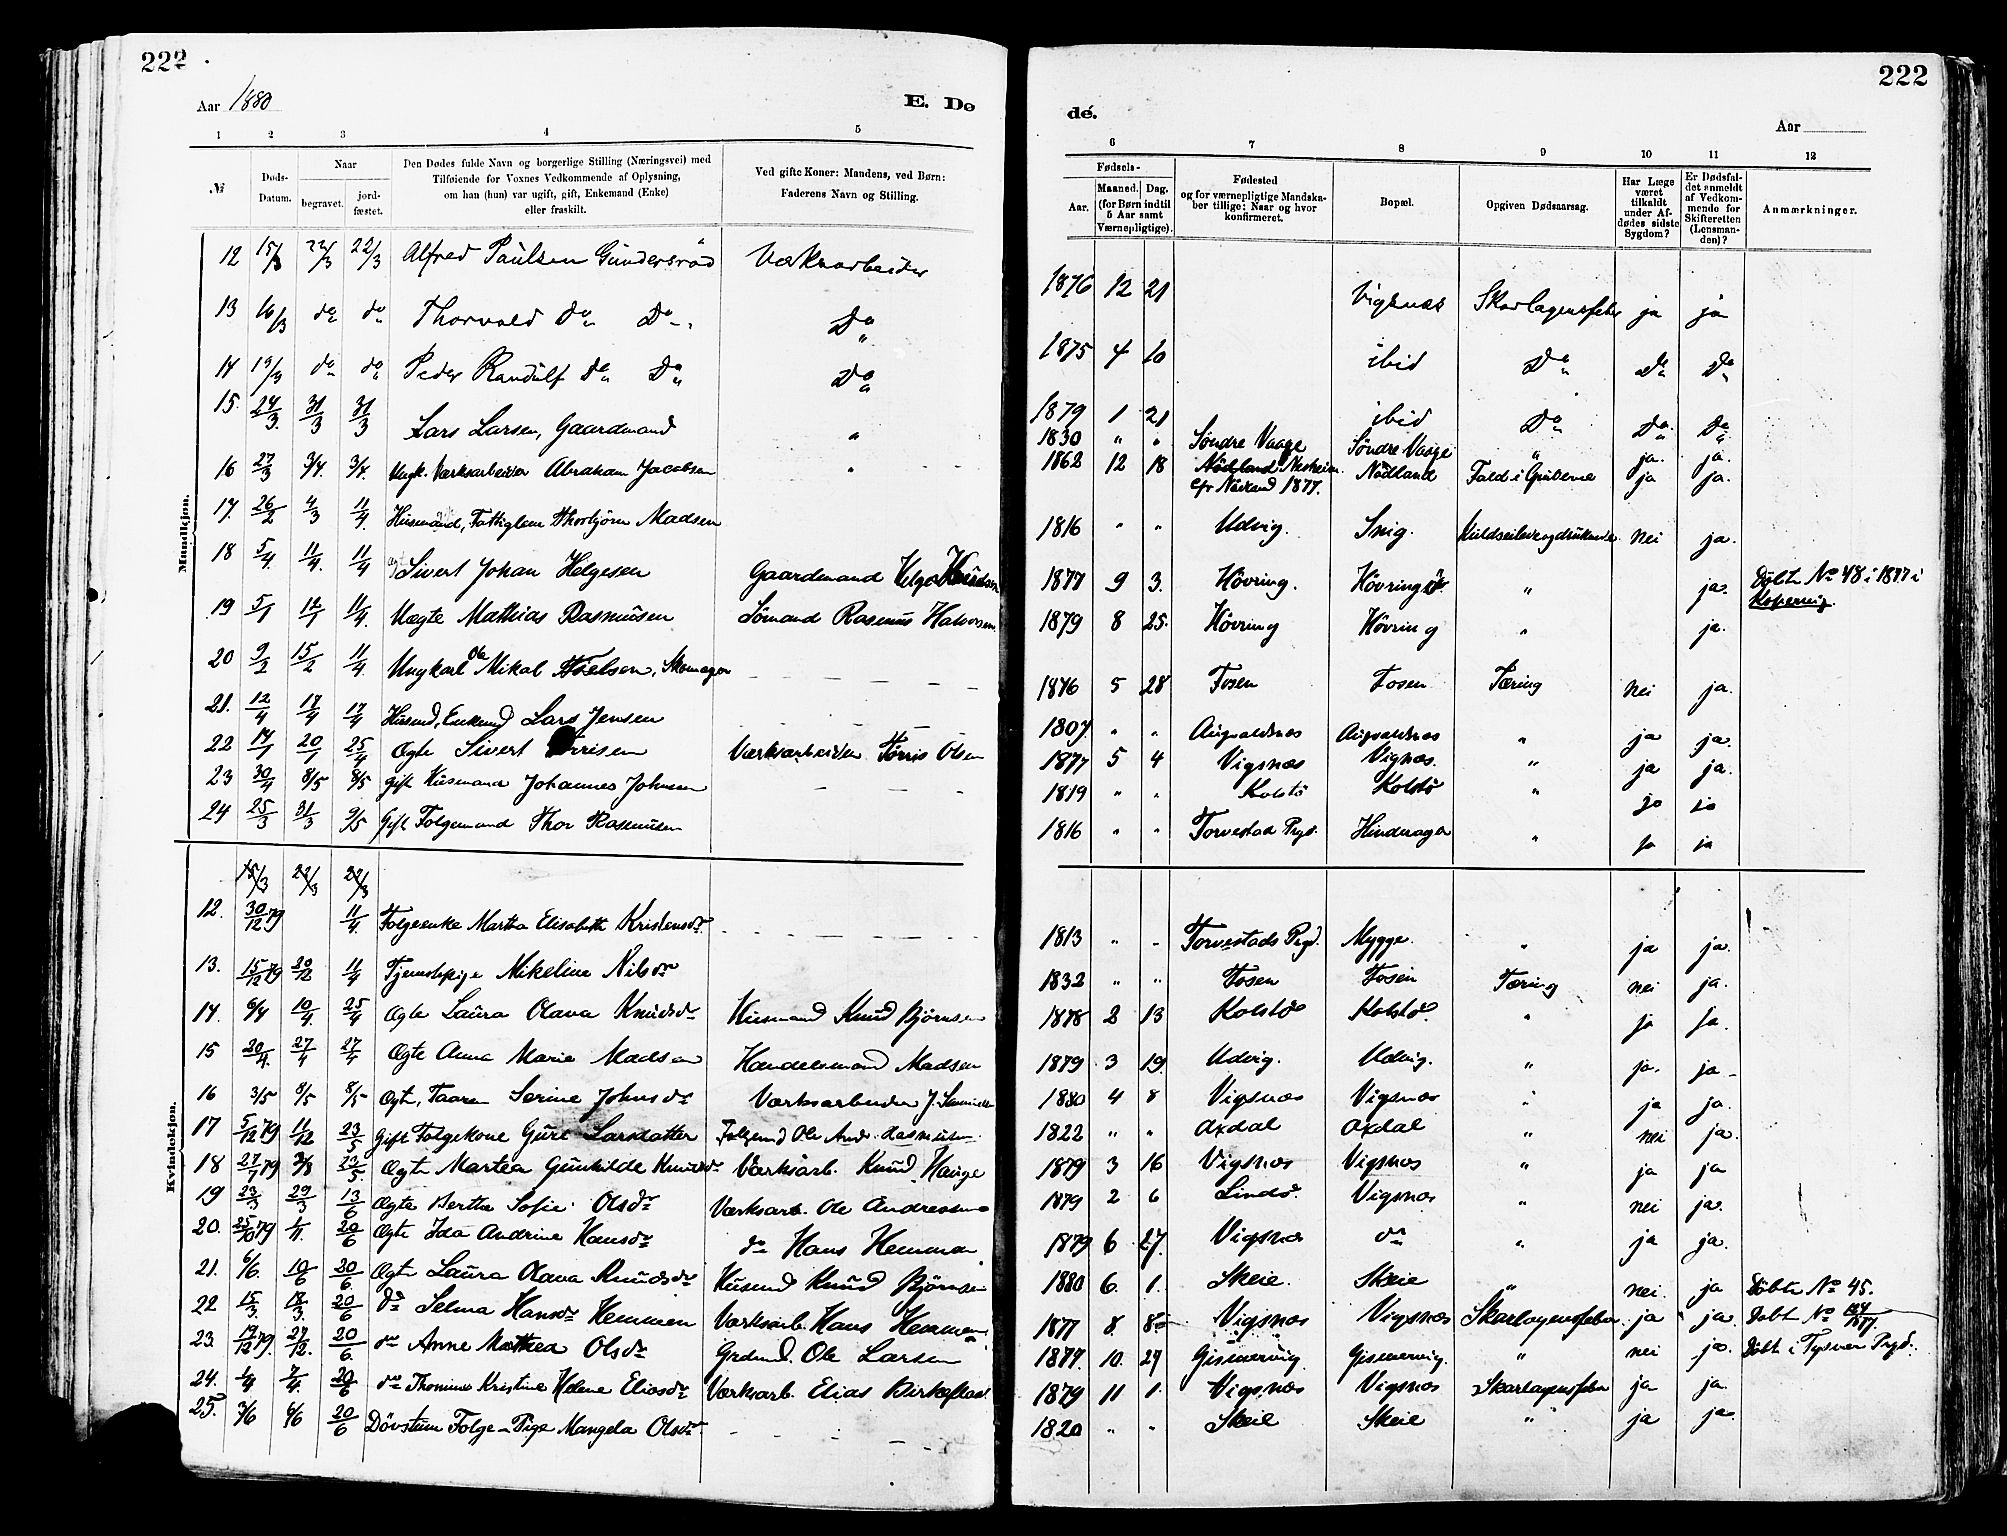 222
Aar 1880
E. Dø
1 2 3 4 5
№
Døds-
Datum.
Naar
begravet.
jord-
fæstet.
Den Dødes fulde Navn og borgerlige Stilling (Næringsvei) med
Tilføiende for Voxnes Vedkommende af Oplysning,
om han (hun) var ugift, gift, Enkemand (Enke)
eller fraskilt.
Ved gifte Koner: Mandens, ved Børn:
Faderens Navn og Stilling.
Mandkjøn.
12 15/3 22/3 22/3 Alfred Paulsen Gundersrød Værksarbeider
13 16/3 do do Thorvald do Do Do
14 19/3 do do Peder Randulf do Do Do
15. 24/3 31/3 31/3 Lars Larsen, Gaardmand "
16 27/3 3/4 3/4 Ungk. Værksarbeider Abraham Jacobsen "
17. 26/2 4/3 11/4 Husmand, Fattiglem Thorbjørn Madsen
18 5/4. 11/4. 11/4 Sivert Johan Helgesen Gaardmand Helge
19 5/1 12/1 11/4. Uægte Mathias Rasmusen Sömand Rasmus Halvorsen
20 9/2 15/2 11/4. Ungkarl Ole Mikal Nielsen, Skomager
21. 12/4 17/4 17/4 Husmd, Enkemd Lars Jensen
22 14/1 20/1 25/4 Ægte Sivert Tørrisen Værksarbeider Tørris Olsen
23 30/4 8/5 8/5 Gift Husmand Johannes Johnsen
24 25/3 31/3 9/5 Gift Folgemand Thor Rasmusen
Kvindekjøn.
15/3 22/3 22/3
12. 30/12 79 11/4. Folgeenke Martha Elisabeth Kristensdr
13. 15/12 79 20/12 11/4 Tjenestepige Mikeline Nilsdr
14. 6/4 10/4. 25/4 Ægte Laura Olava Knudsdr Husmand Knud Bjørnsen
15 20/4. 27/4 27/4 Ægte Anna Marie Madsen Handelsmand Madsen
16 3/5 8/5 8/5 Ægte, Taaren Serine Johnsdr Værksarbeider J.
17 5/12 79 11/12 23/5 Gift Folgekone Guri Larsdatter Folgemd Ole Andr. Rasmusen
18 27/7 79 3/8 23/5. Ægte Martea Gunhilde Knudsdr Værksarb. Knud Hauge
19 23/3 29/3 13/6 Ægte Bertha Sofie Olsdr Værksarb. Ole Andreassen
20. 25/10 79 1/11. 20/6 Ægte Ida Andrine Hansdr do Hans Hemmen
21. 6/6. 10/6 20/6 Ægte Laura Olava Knudsdr Husmd Knud Bjørnsen
22 15/3 18/3. 20/6 do Selma Hansdr Hemmen Værksarb. Hans Hemmen
23. 19/12 79. 27/12. 20/6. do Anne Mathea Olsdr Grdmd. Ole Larsen
24. 1/4 7/4. 20/6 do Thomine Kristine Helene Eliasdr Værksarb. Elias Birkeflaat
25. 3/6 6/6 20/6 Døvstum Folge-Pige Mangela Olsdr
222
dé.
Aar
6 7 8 9 10 11 12
Fødsels-
Aar.
Maaned. Dag.
(for Børn indtil
5 Aar samt
Værnepligtige).
Fødested
og for værnepligtige Mandska-
ber tillige: Naar og hvor
konfirmeret.
Bopæl.
Opgiven Dødsaarsag.
Har Læge
været
tilkaldt
under Af-
dødes sidste
Sygdom?
Er Dødsfal-
det anmeldt
af Vedkom-
mende for
Skifteretten
(Lensman-
den)?
Anmærkninger.
1876 12 21 Vigsnæs Skarlagensfeber ja ja
1875 4 10 ibid Do Do Do
1879 1 21 ibid Do Do Do
1830 " " Søndre Vaage Søndre Vaage " ja. ja.
1862 12 18 Nødland Nesheim Nødland Fald i Gruberne ja ja.
cfr Nødland 1877.
1816 " " Udvig. Snig. nei ja.
1877 9 3. Høvring. Høvring " ja. Døbt No 48 i 1877 i
Kopervig.
1879 8 25. Høvring Høvring " ja.
1846 5 28 Fosen Fosen Tæring nei ja.
1807. " " Augvaldsnæs Augvaldsnæs " ja ja.
1877 5 4 Vigsnæs Vigsnæs. " ja ja.
1819 " " Kolstø Kolstø " ja ja
1816 " " Torvestad Prgd. Hinderager " ja ja
1813 " " Torvestads Prgd. Mygge. " ja ja.
1832 " " Fosen Fosen Tæring nei ja.
1878 2 13 Kolstø Kolstø. " ja ja.
1879 3 19 Udvig. Udvig. " ja. ja
1880 4 8 Vigsnæs Vigsnæs " ja ja.
1822 " " Øxdal Øxdal " nei ja.
1879 3 16 Vigsnæs Vigsnæs " ja ja
1879 2 6 Lindø. Vigsnæs " nei ja.
1879 6 27. Vigsnæs do " ja ja.
1880 6. 1. Skeie. Skeie " nei. ja Døbt No 45.
1877 8. 8 Vigsnæs Vigsnæs Skarlagensfeber ja ja. Døbt No
1877. 10. 27 Gismervig. Gismervig. " nei ja. Døbt i Tysvær Prgd.
1879 11 1. Vigsnæs Vigsnæs Skarlagensfeber ja ja.
1820 " " Skeie Skeie " ja ja.